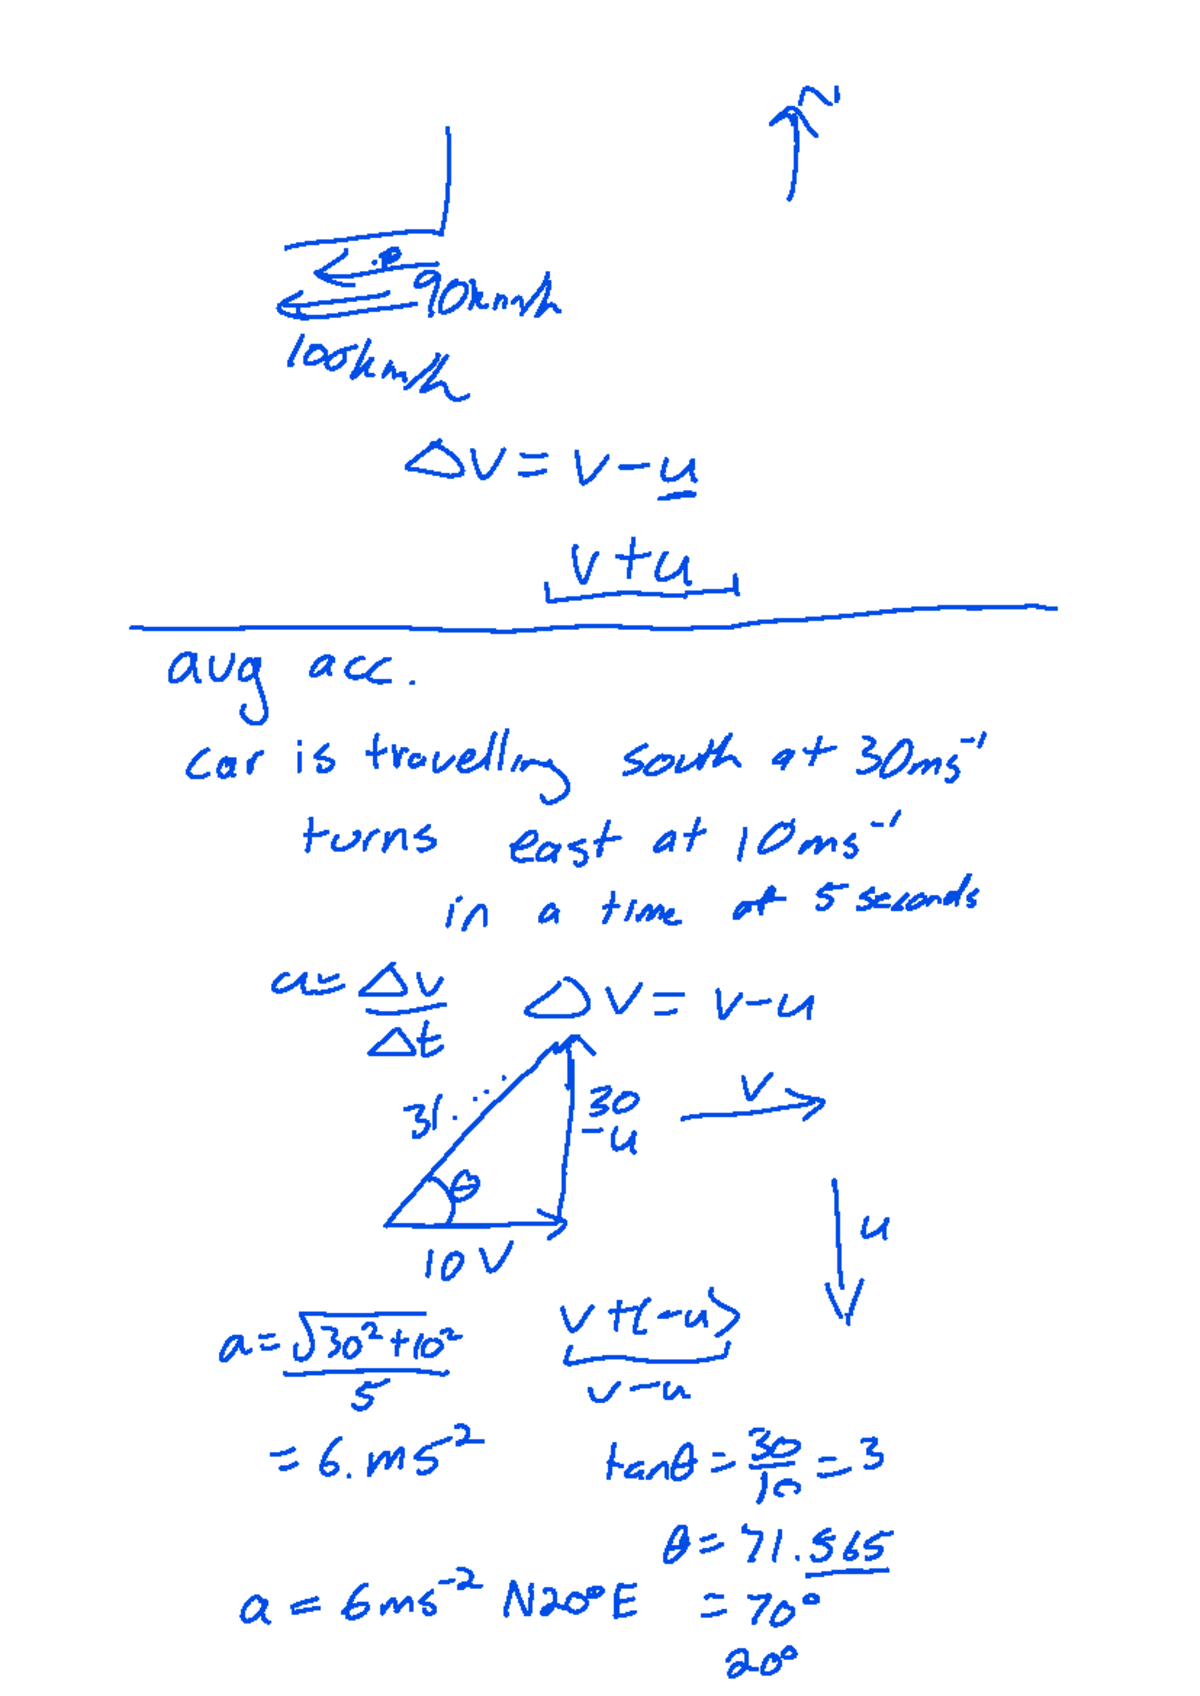 N
90km/h
100km/h
Δv = v-u
v+u
avg acc.
car is travelling south at 30ms⁻¹
turns east at 10ms⁻¹
in a time of 5 seconds
a = Δv/Δt Δv = v-u
31.... 30 v
-u
θ
u
10 v
a = √30²+10²/5 v+(-u)
v-u
= 6.ms⁻² tanθ = 30/10 = 3
θ = 71.565
a = 6ms⁻² N20°E = 70°
20°